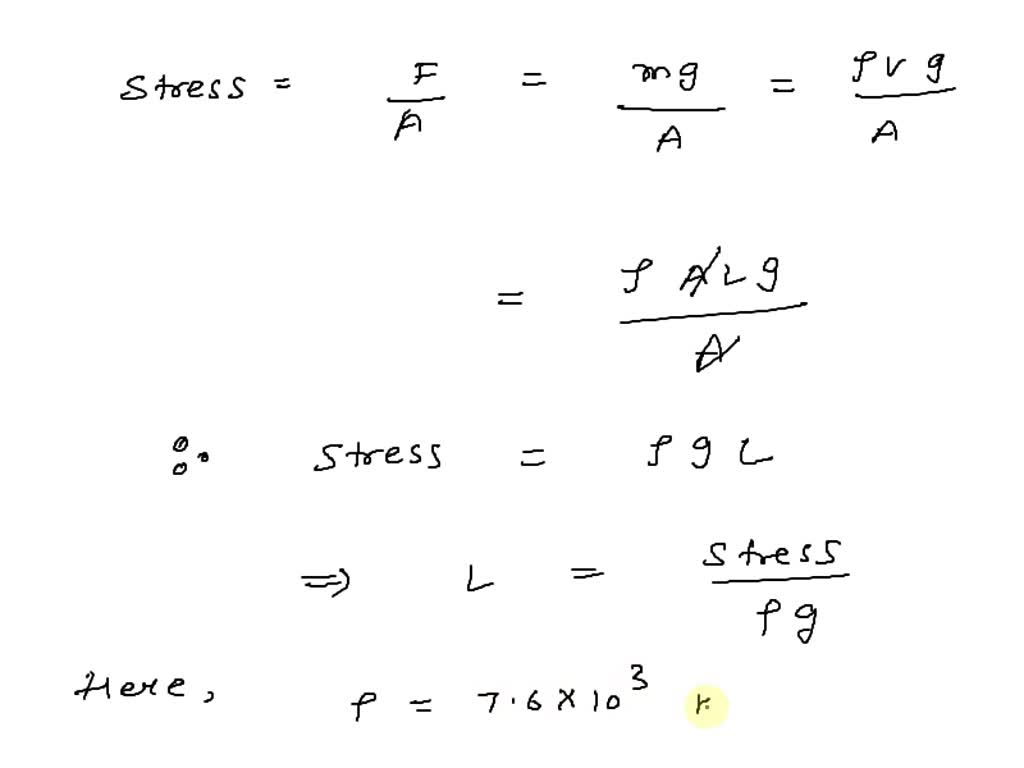 Stress = F/A = mg/A = ρvg/A
= ρALg/A
∴ Stress = ρgL
⇒ L = Stress/ρg
Here, ρ = 7.6 × 10³ k